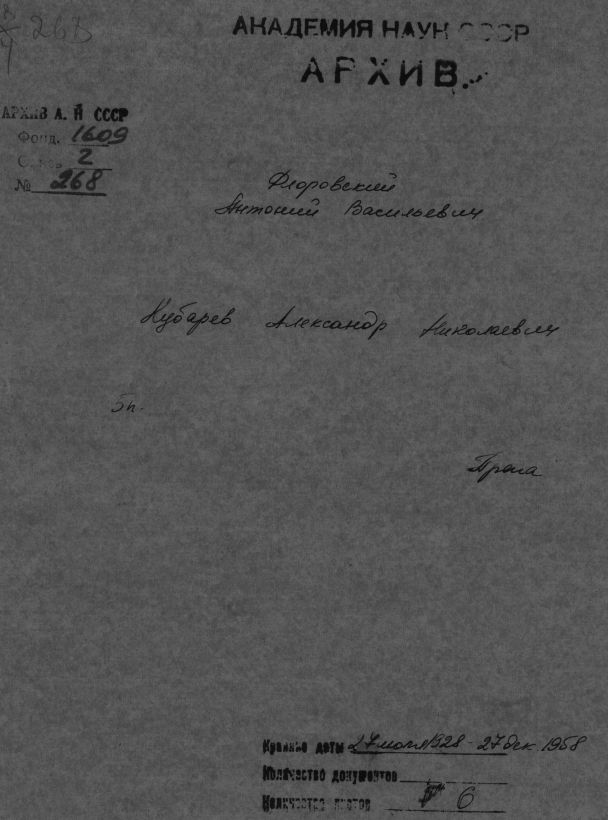 26В
АКАДЕМИЯ НАУК СССР
АРХИВ.
АРХИВ А. Н СССР
Фонд. 1609
Опись 2
№ 268
Флоровский
Антоний Васильевич
Кубарев Александр Николаевич
5п.
Прага
Крайние даты 27 июля 1928 - 27 дек. 1958
Количество документов
Количество листов 6